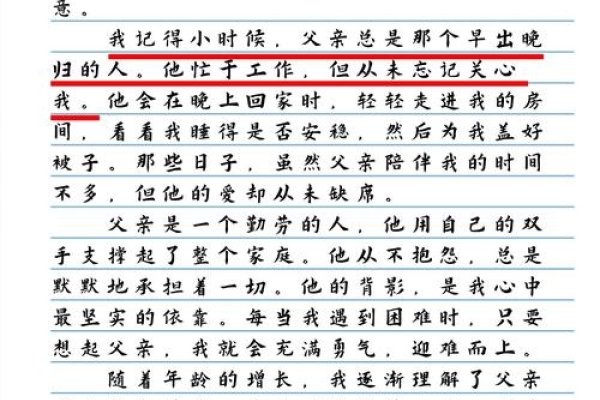 意。
我记得小时候，父亲总是那个早出晚
归的人。他忙于工作，但从未忘记关心
我。他会在晚上回家时，轻轻走进我的房
间，看看我睡得是否安稳，然后为我盖好
被子。那些日子，虽然父亲陪伴我的时间
不多，但他的爱却从未缺席。
父亲是一个勤劳的人，他用自己的双
手支撑起了整个家庭。他从不抱怨，总是
默默地承担着一切。他的背影，是我心中
最坚实的依靠。每当我遇到困难时，只要
想起父亲，我就会充满勇气，迎难而上。
随着年龄的增长，我逐渐理解了父亲